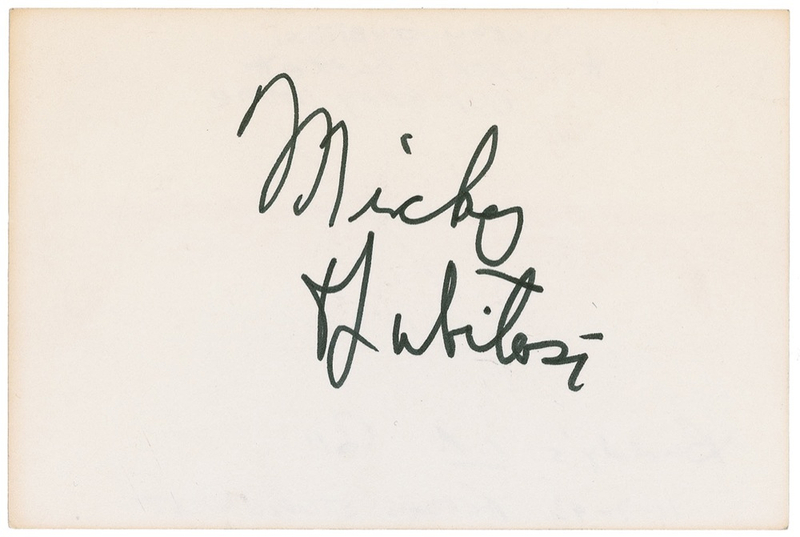 Mickey
Gubitosi